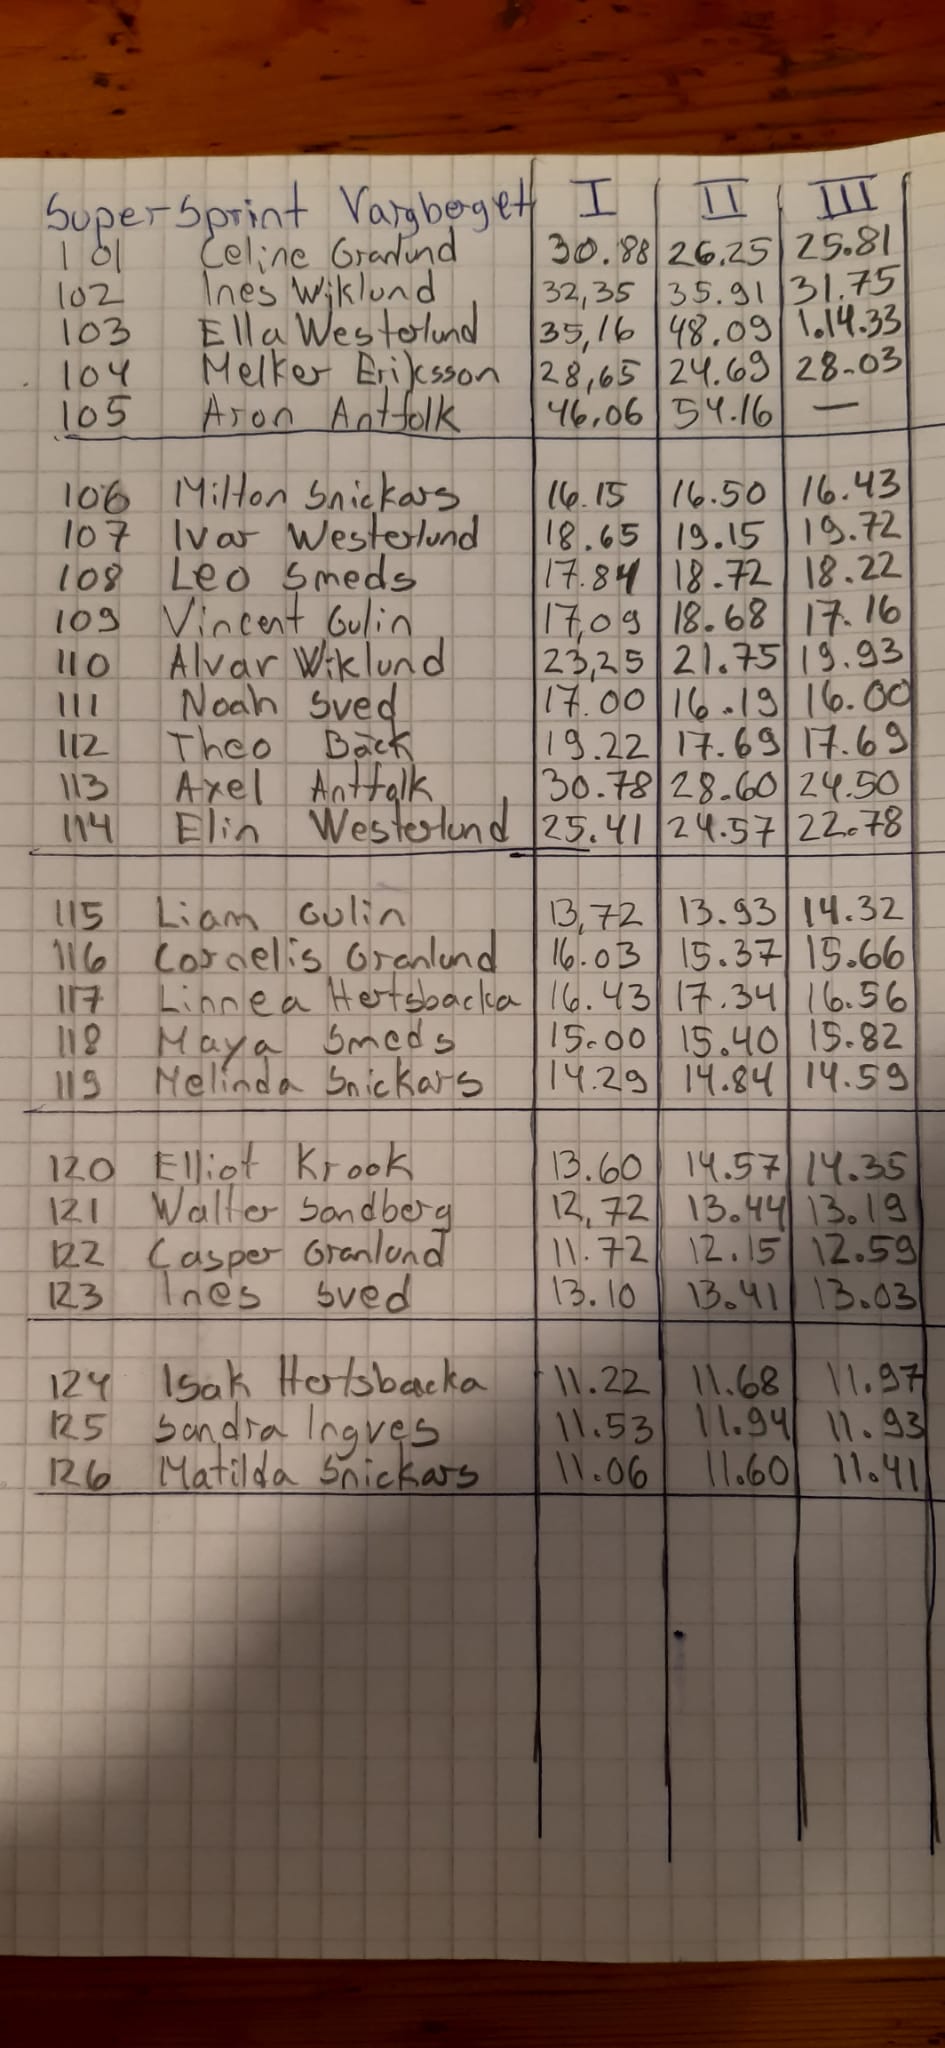 SuperSprint Vargberget I II III
101 Celine Granlund 30.88 26.25 25.81
102 Ines Wiklund 32,35 35.91 31.75
103 Ella Westerlund 35,16 48.09 1.14.33
104 Melker Eriksson 28,65 24.69 28.03
105 Aron Antfolk 46,06 54.16 —
106 Milton Snickars 16.15 16.50 16.43
107 Ivar Westerlund 18.65 19.15 19.72
108 Leo Smeds 17.84 18.72 18.22
109 Vincent Gulin 17,09 18.68 17.16
110 Alvar Wiklund 23,25 21.75 19.93
111 Noah Sved 17.00 16.19 16.00
112 Theo Bäck 19.22 17.69 17.69
113 Axel Antfolk 30.78 28.60 24.50
114 Elin Westerlund 25.41 24.57 22.78
115 Liam Gulin 13,72 13.93 14.32
116 Cornelis Granlund 16.03 15.37 15.66
117 Linnea Hertsbacka 16.43 17.34 16.56
118 Maya Smeds 15.00 15.40 15.82
119 Melinda Snickars 14.29 14.84 14.59
120 Elliot Krook 13.60 14.57 14.35
121 Walter Sandberg 12,72 13.44 13.19
122 Casper Granlund 11.72 12.15 12.59
123 Ines Sved 13.10 13.41 13.03
124 Isak Hertsbacka 11.22 11.68 11.97
125 Sandra Ingves 11.53 11.94 11.93
126 Matilda Snickars 11.06 11.60 11.41